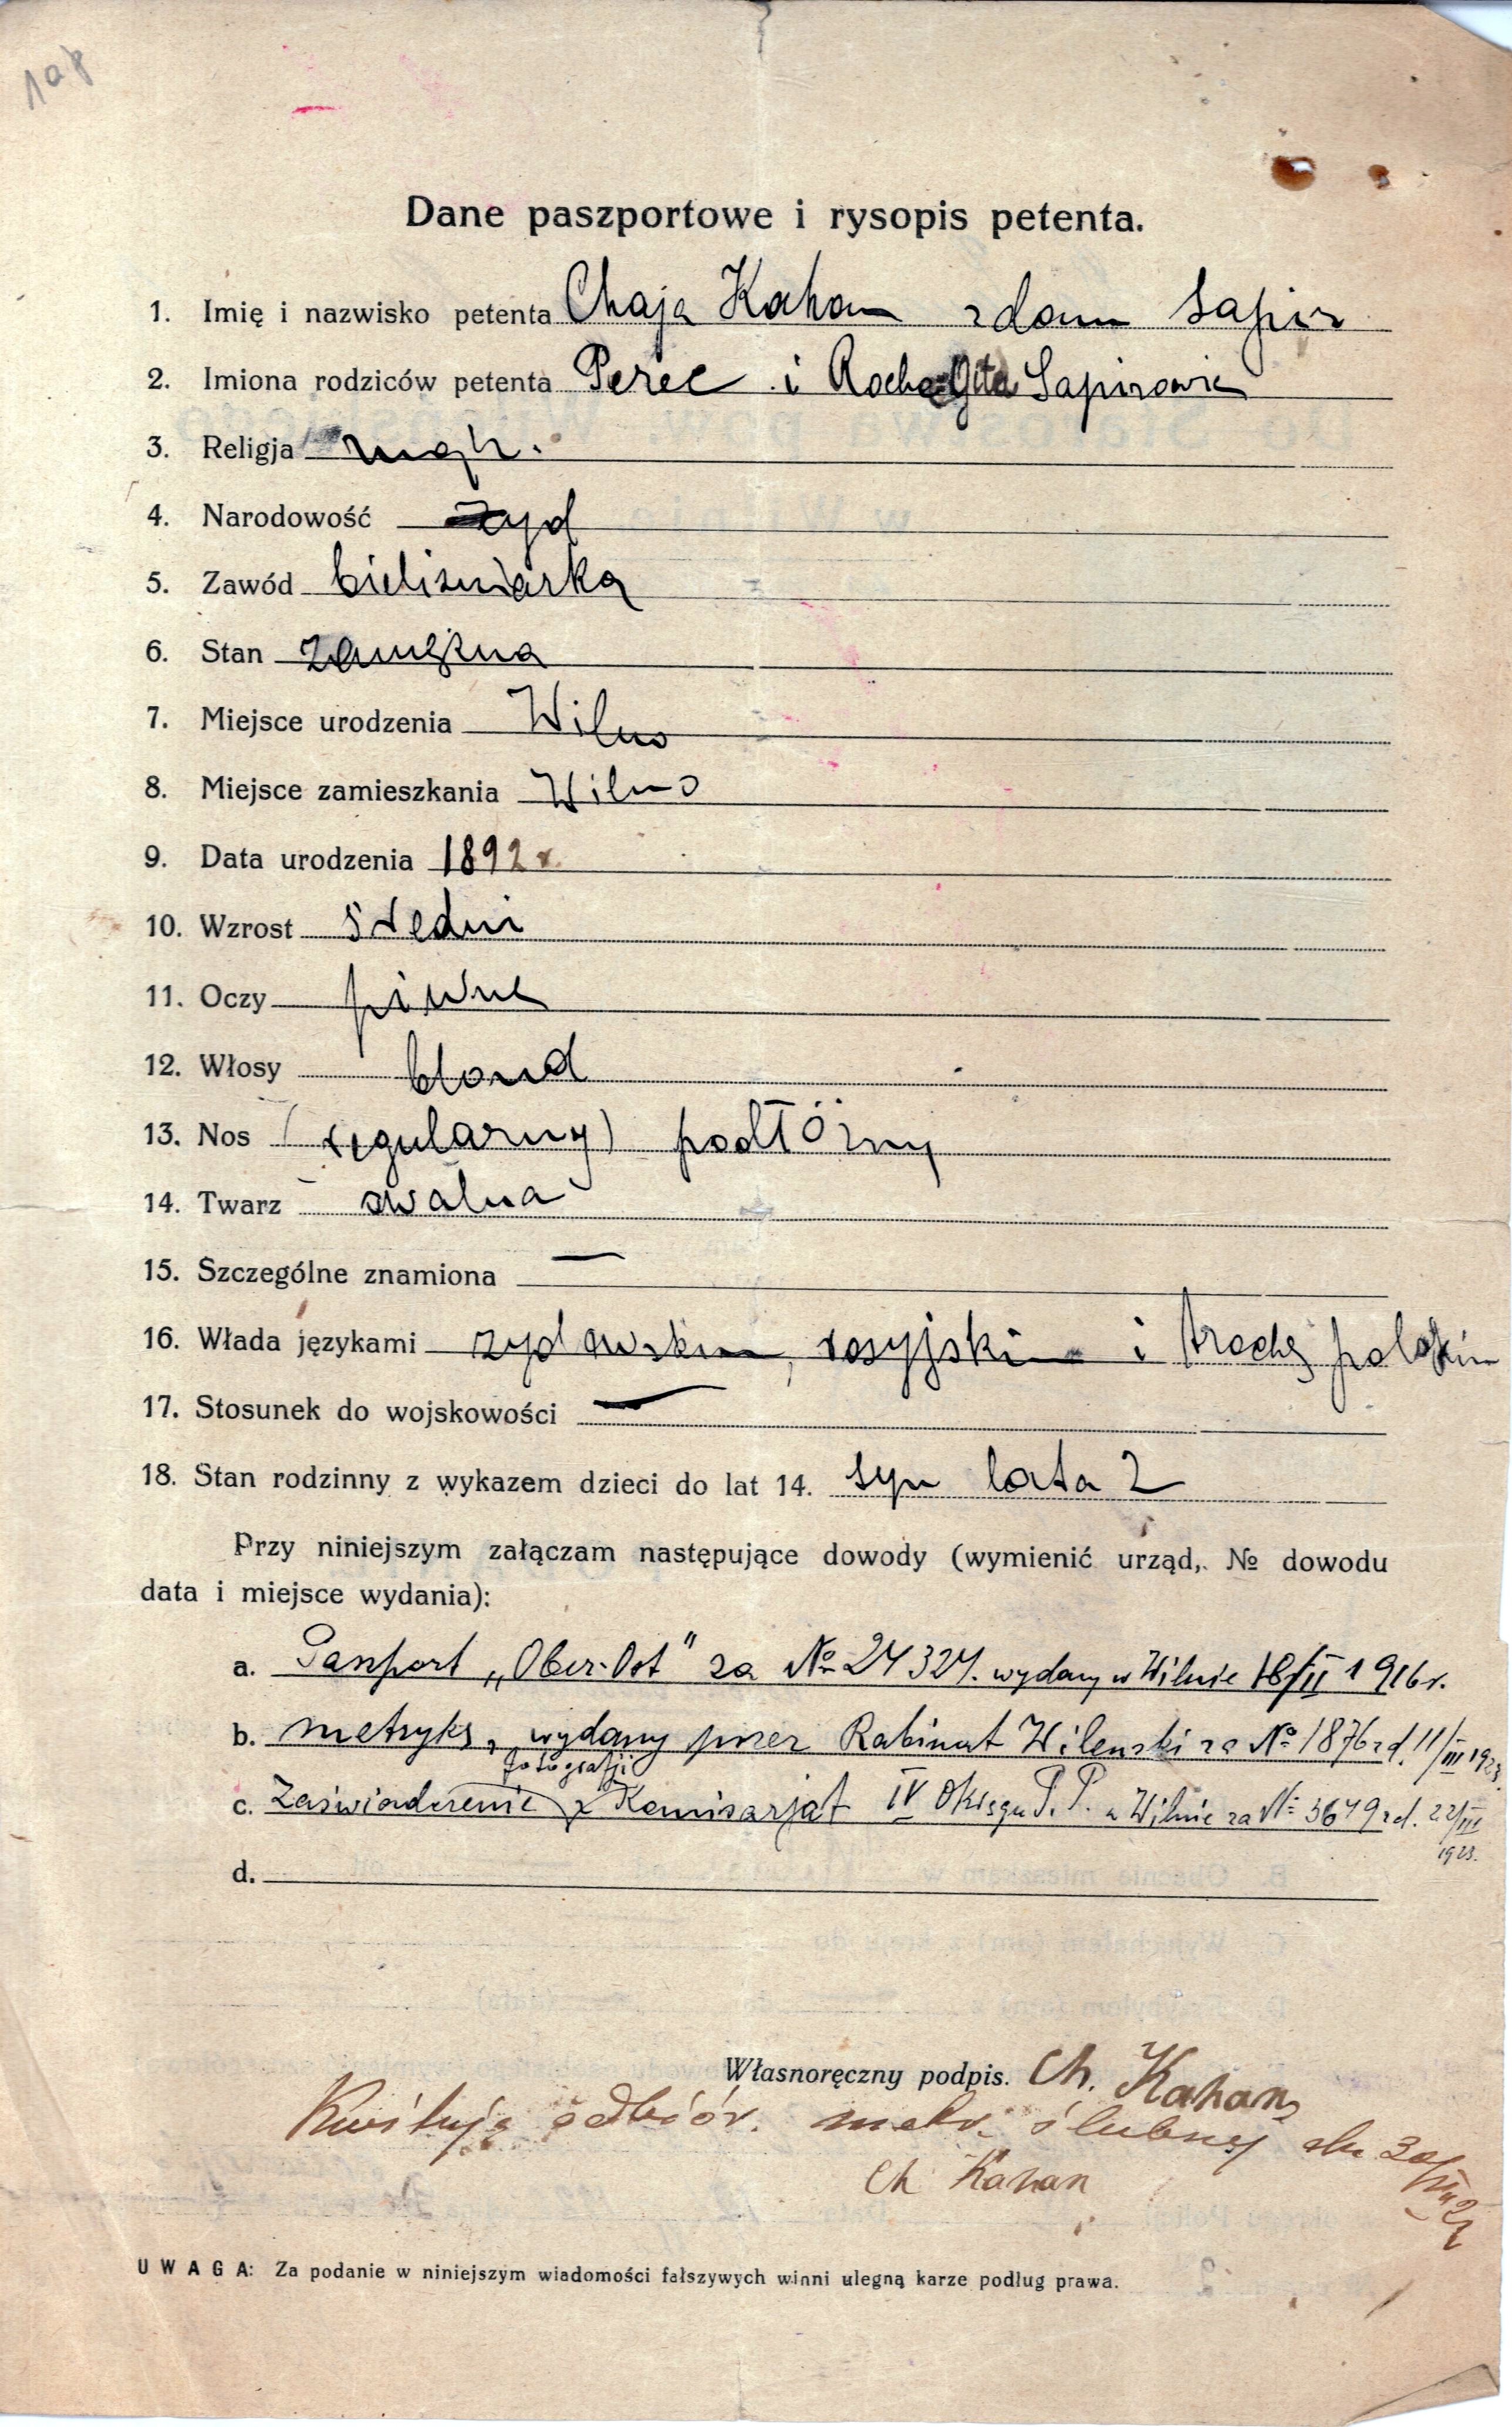 108
Dane paszportowe i rysopis petenta.
1. Imię i nazwisko petenta Chaja Kahan z domu Sapir
2. Imiona rodziców petenta Perec i Rocha-Gita Sapirowie
3. Religja mojż.
4. Narodowość żyd
5. Zawód bielizniarka
6. Stan zamężna
7. Miejsce urodzenia Wilno
8. Miejsce zamieszkania Wilno
9. Data urodzenia 1892 r.
10. Wzrost średni
11. Oczy piwne
12. Włosy blond
13. Nos (regularny) podłóżny
14. Twarz owalna
15. Szczególne znamiona —
16. Włada językami żydowskim, rosyjskim i trochę polskim
17. Stosunek do wojskowości —
18. Stan rodzinny z wykazem dzieci do lat 14. syn lata 2
Przy niniejszym załączam następujące dowody (wymienić urząd, № dowodu
data i miejsce wydania):
a. Paszport „Ober-Ost" za № 24324. wydany w Wilnie 18/II 1916 r.
b. metrykę, wydany przez Rabinat Wileński za № 1876 z d. 11/III 1923.
fotografji
c. Zaświadczenie z Komisarjat IV Okręgu P. P. w Wilnie za № 3649 z d. 22/III
1923.
d.
Własnoręczny podpis. Ch. Kahan
Kwituję odbiór. metr. ślubnej dn 30/
Ch Kahan
UWAGA: Za podanie w niniejszym wiadomości fałszywych winni ulegną karze podług prawa.